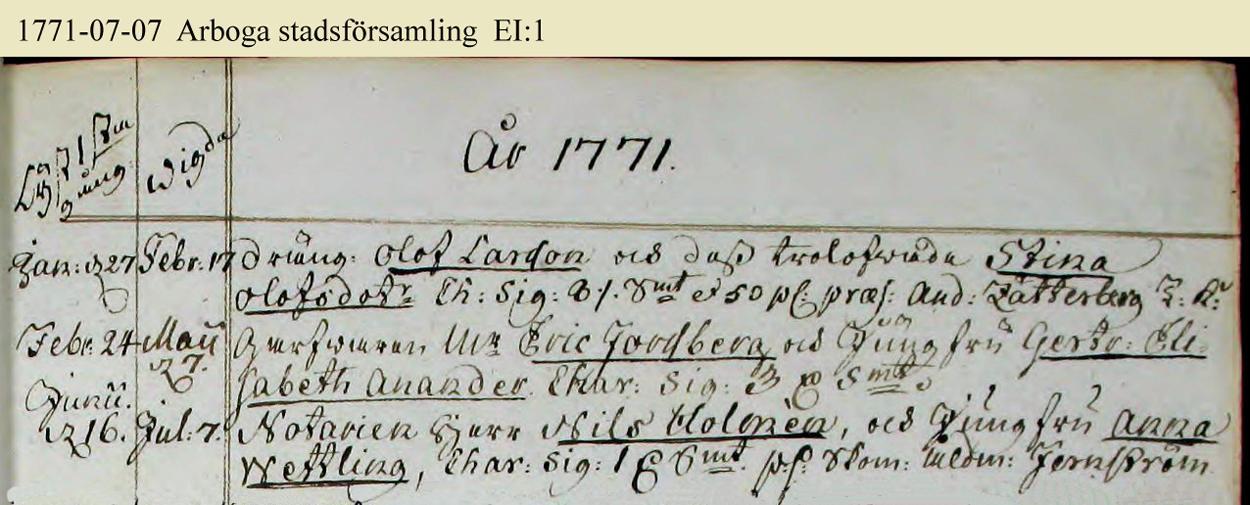 1771-07-07 Arboga stadsförsamling EI:1
År 1771.
Wigda
Jan: 27 Febr: 17 Dräng: Olof Larson och dess trolofwade Stina
Olofsdotr Ch: Sig: 8 s. Smt And: Zätterberg
Febr: 24 Maii 27. Garfwaren Mr Eric Jordberg och Jungfru Gertr: Eli-
sabeth Anander. Char: Sig: 3 Smt
Junii. 16. Jul: 7. Notarien Herr Nils Holmèn, och Jungfru Anna
Wettling, Char: Sig: 1 Smt. Jernström